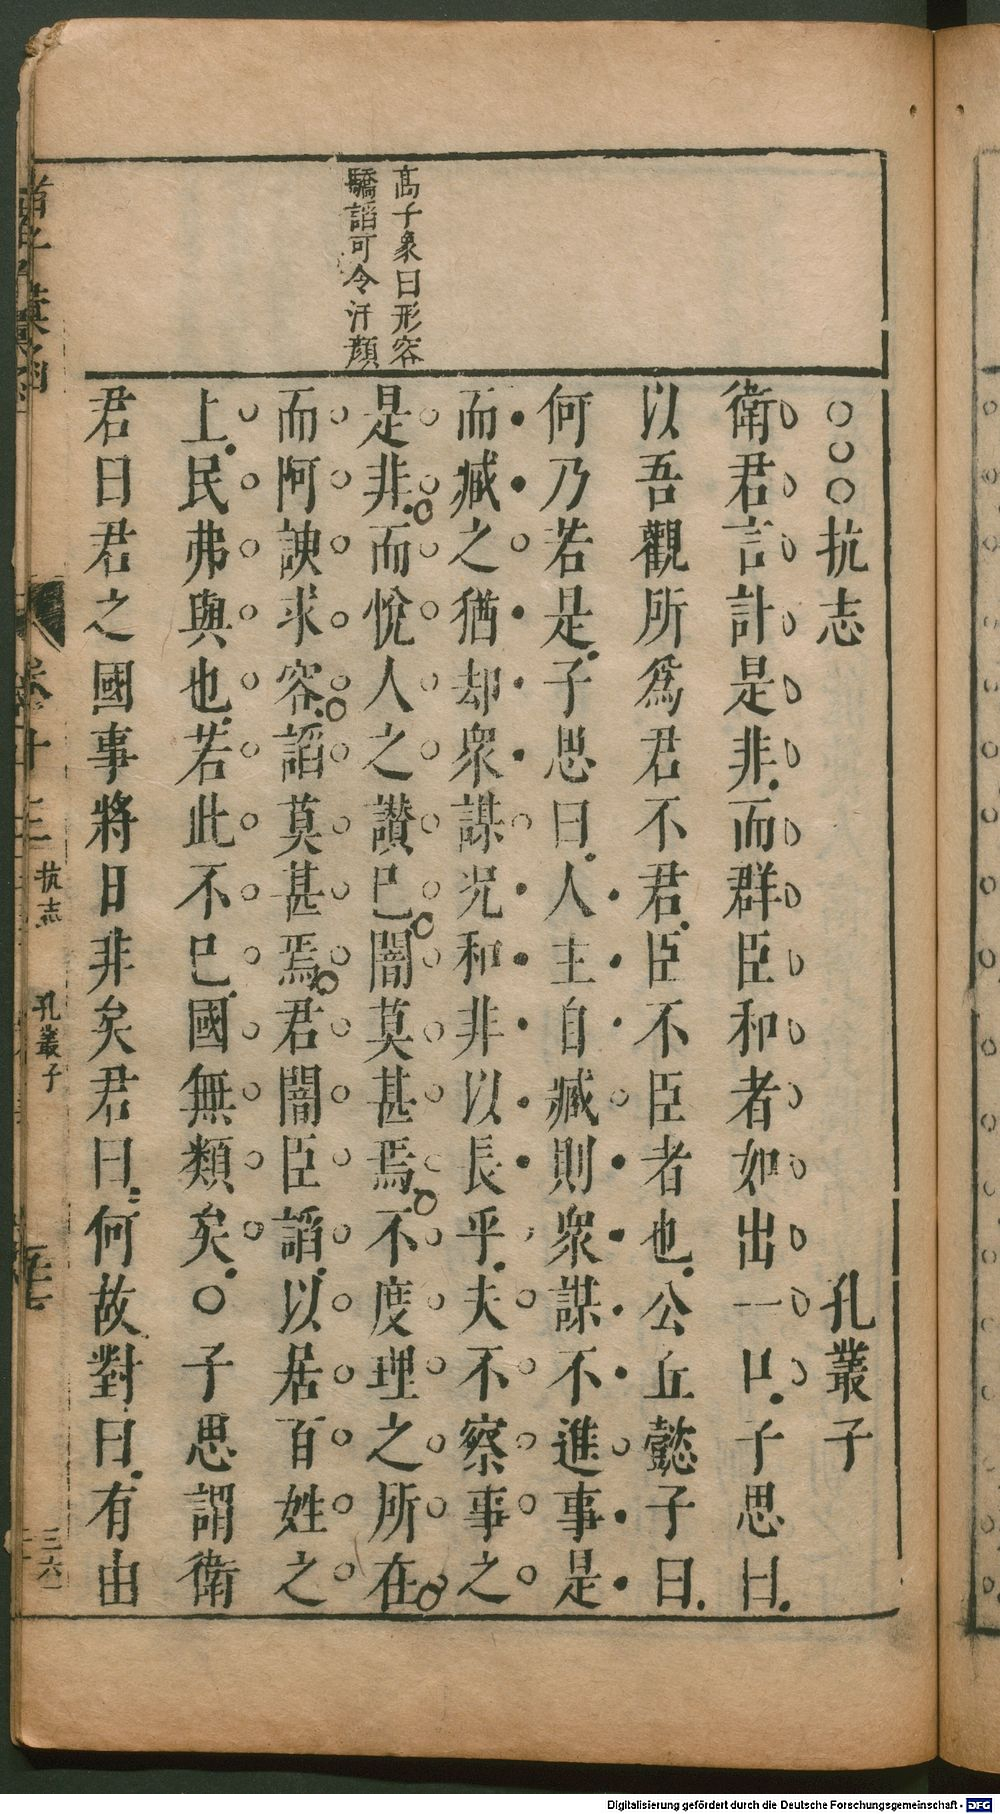 高子象曰形容
驕謟可令汗顏
○○○抗志 孔叢子
衛君言計是非而群臣和者如出一口子思曰
以吾觀所爲君不君臣不臣者也公丘懿子曰
何乃若是子思曰人主自臧則衆謀不進事是
而臧之猶却衆謀况和非以長乎夫不察事之
是非而悅人之讃己闇莫甚焉不度理之所在
而阿諛求容謟莫甚焉君闇臣謟以居百姓之
上民弗與也若此不已國無類矣○子思謂衛
君曰君之國事將日非矣君曰何故對曰有由
卷十三 抗志 孔叢子 三六
Digitalisierung gefördert durch die Deutsche Forschungsgemeinschaft - DFG